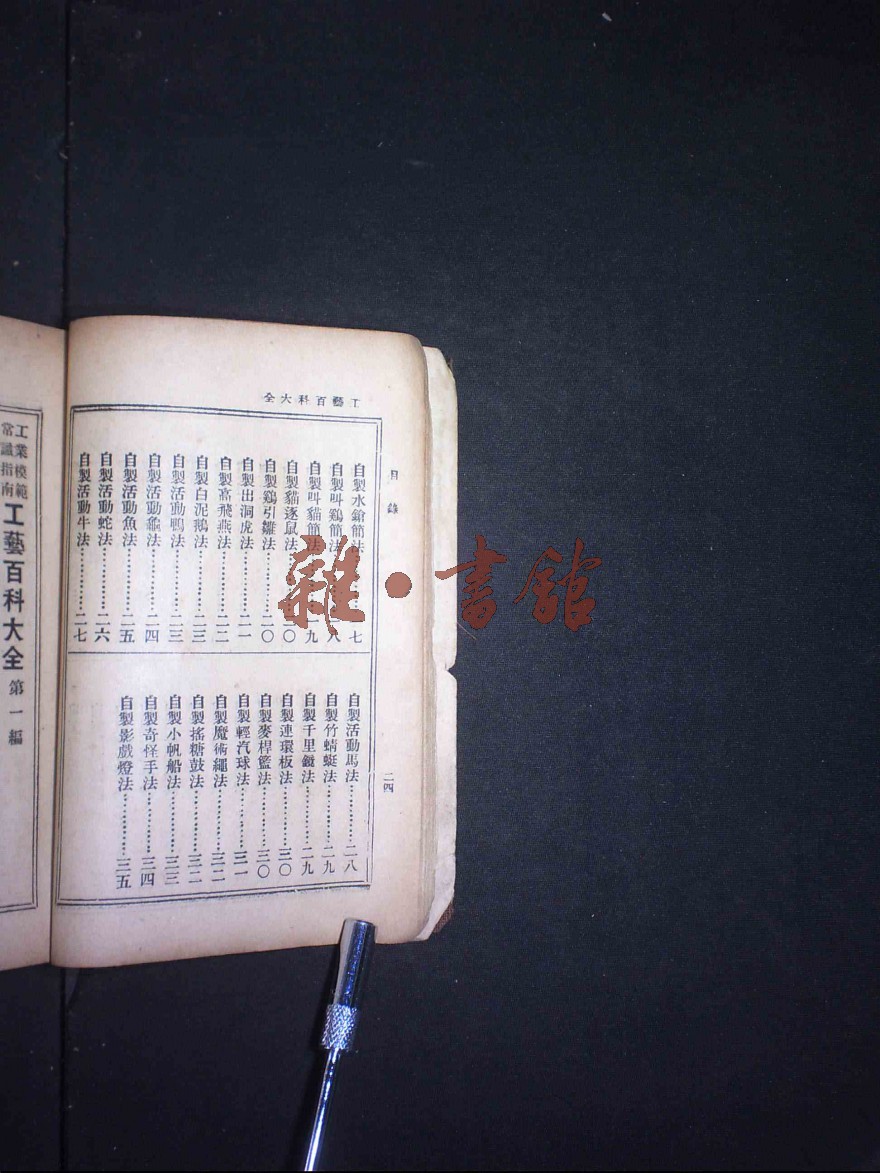 工藝百科大全
目錄
二四
自製水鎗筒法…………七
自製叫鷄筒法…………八
自製叫貓筒法…………一九
自製貓逐鼠法…………二〇
自製鷄引雛法…………二〇
自製出洞虎法…………二一
自製高飛燕法…………二二
自製白泥鵝法…………二三
自製活動鴨法…………二三
自製活動龜法…………二四
自製活動魚法…………二五
自製活動蛇法…………二六
自製活動牛法…………二七
自製活動馬法…………二八
自製竹蜻蜓法…………二九
自製千里鏡法…………二九
自製連環板法…………三〇
自製麥桿籃法…………三〇
自製輕汽球法…………三一
自製魔術繩法…………三二
自製搖糖鼓法…………三二
自製小帆船法…………三三
自製奇怪手法…………三四
自製影戲燈法…………三五
工業模範
常識指南
工藝百科大全
第一編
雜·書館